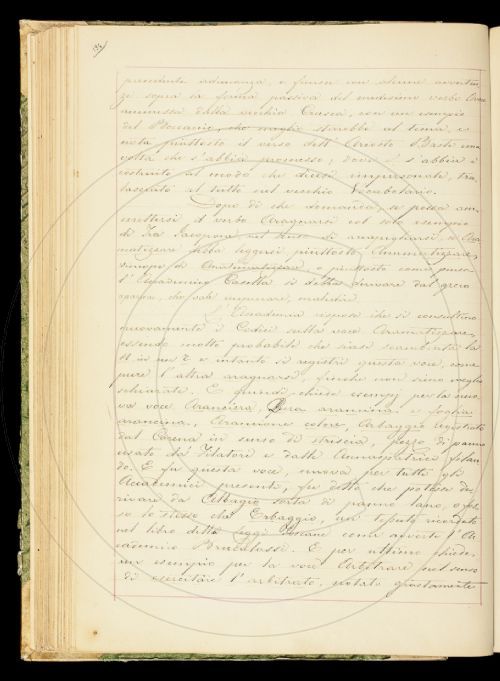 precedente adunanza, e finisce con alcune avverten
ze sopra la forma passiva del medesimo verbo
ammessa dalla vecchia Crusca, con un esempio
del Boccaccio, che meglio starebbe al tema, e
nota piuttosto il verso dell'Ariosto Basti una
volta che s'abbia promesso; dove s'abbia è
costruito al modo che dicesi impersonale, tra
lasciato al tutto nel vecchio Vocabolario.
Dopo di che domanda, se possa am
mettersi il verbo Aragnarsi col solo esempio
di Fra Jacopone nel senso di
debba leggersi piuttosto
di Anatematizzare, o piuttosto come pensa
l'Accademico Casella si debba derivare dal greco
che vale imprecare, maledire.
L'Accademia rispose che si consultino
nuovamente i Codici sulla voce Aramatizzare,
essendo molto probabile che siasi scambiata la
in un e intanto si registri questa voce, come
pure l'altra aragnarsi, finchè non sieno meglio
schiarate. E quindi chiese esempj per la nuo
va voce Aranciera, Pera arancina e foglia
arancina, Arancione colore, Arbaggio registrato
dal Cesena in senso di striscia, pezzo di panno
usato da Filatori e dalle Annaspatrici filan
do. E fu questa voce, nuova per tutti gli
Accademici presenti, fu detto che potesse de
rivare da Albagio sorta di panno lano, o for
se lo stesso che Erbaggio, un tessuto ricordato
nel libro delle leggi Toscane come avvertì l'Ac
cademico Brucalassi. E per ultimo chiede
un esempio per la voce Arbitrare nel senso
di esercitare l'arbitrato, notata giustamente